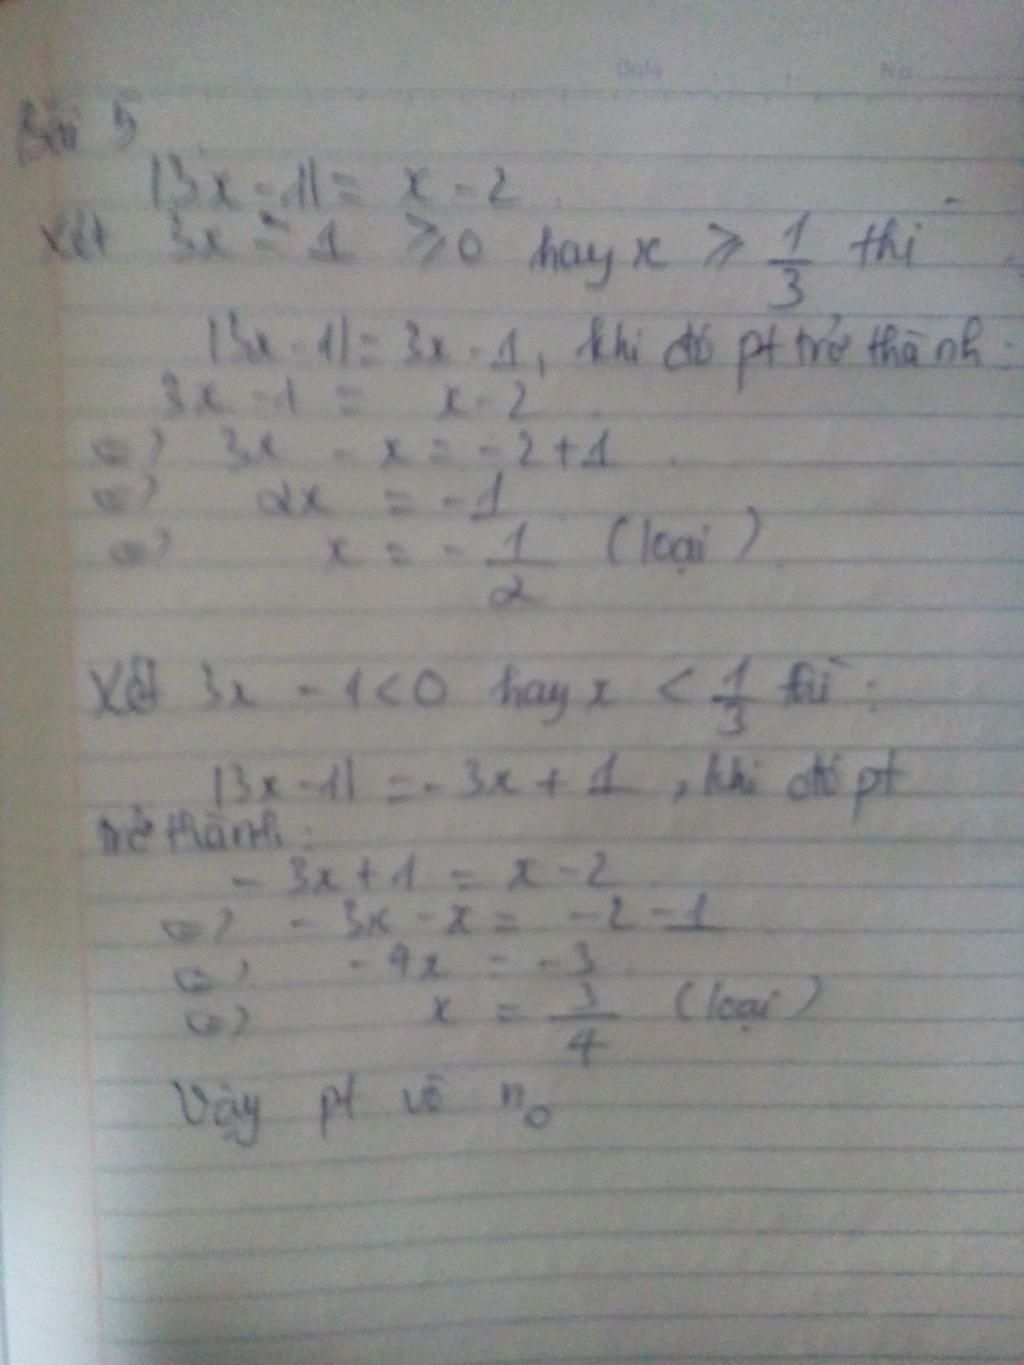 Date No
Bài 5
|3x - 1| = x - 2
Xét 3x - 1 ⩾ 0 hay x ⩾ 1/3 thì
|3x - 1| = 3x - 1, khi đó pt trở thành:
3x - 1 = x - 2
<=> 3x - x = -2 + 1
<=> 2x = -1
<=> x = -1/2 (loại)
Xét 3x - 1 < 0 hay x < 1/3 thì:
|3x - 1| = -3x + 1, khi đó pt
trở thành:
-3x + 1 = x - 2
<=> -3x - x = -2 - 1
<=> -4x = -3
<=> x = 3/4 (loại)
Vậy pt vô n0